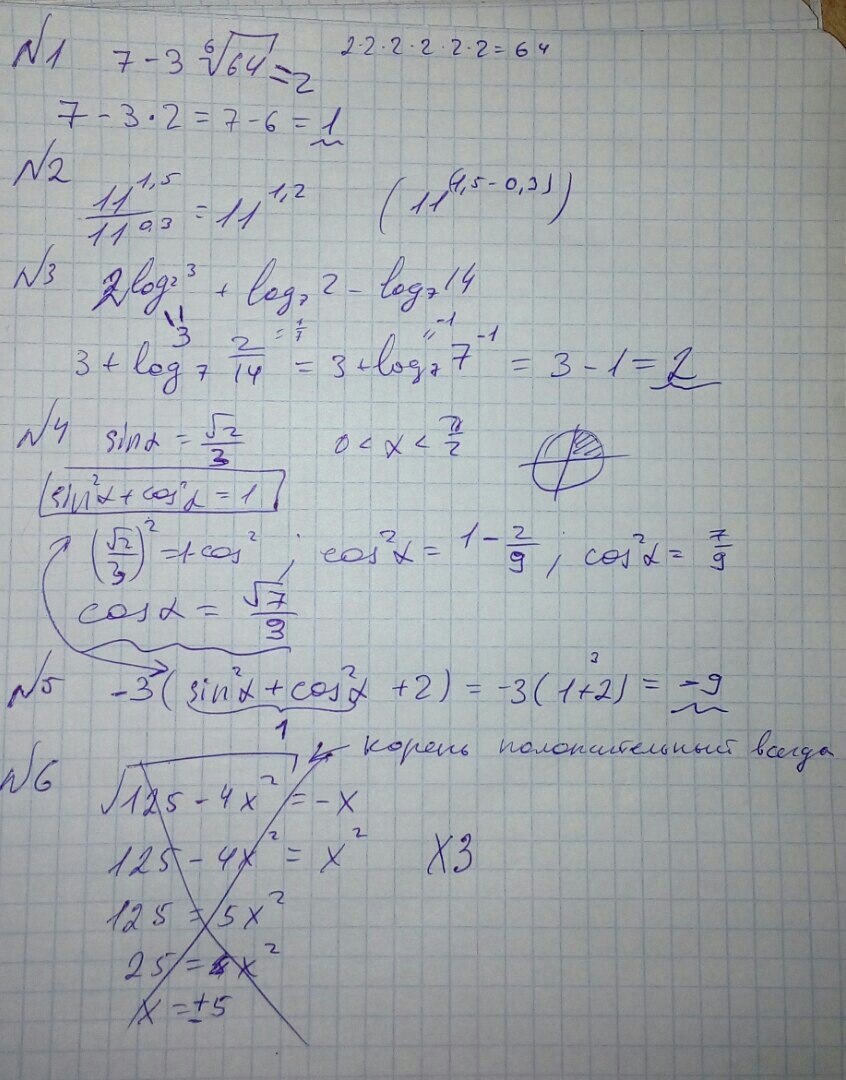 №1 7 - 3 ⁶√64 = 2 2·2·2·2·2·2 = 64
7 - 3·2 = 7 - 6 = 1
№2
11^1,5 / 11^0,3 = 11^1,2 (11^(1,5 - 0,3))
№3 2^log₂3 + log₇2 - log₇14
3
3 + log₇ 2/14 = 1/7 = 3 + log₇7^-1 = 3 - 1 = 2
№4 sinα = √2/3 0 < x < π/2
sin²α + cos²α = 1
(√2/3)² = 1 - cos² ; cos²α = 1 - 2/9 ; cos²α = 7/9
cosα = √7/3
№5 -3(sin²α + cos²α + 2) = -3(1+2) = -9
1 3
№6 корень положительный всегда
√125 - 4x² = -x
125 - 4x² = x² X3
125 = 5x²
25 = x²
x = ±5